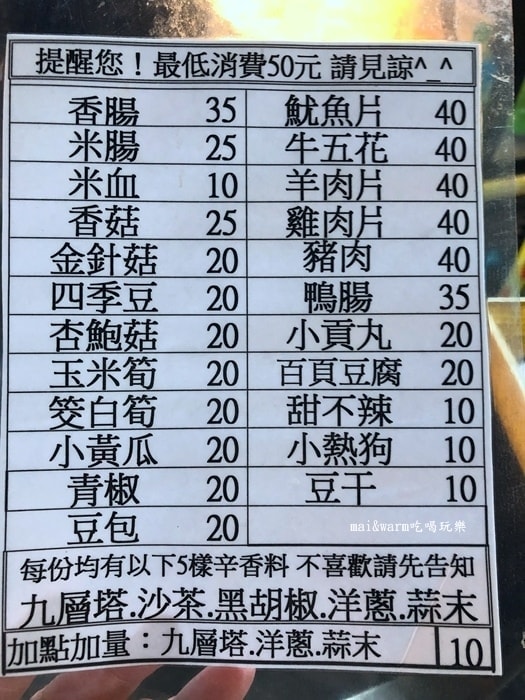 提醒您！最低消費50元 請見諒^_^
香腸 35 魷魚片 40
米腸 25 牛五花 40
米血 10 羊肉片 40
香菇 25 雞肉片 40
金針菇 20 豬肉 40
四季豆 20 鴨腸 35
杏鮑菇 20 小貢丸 20
玉米筍 20 百頁豆腐 20
筊白筍 20 甜不辣 10
小黃瓜 20 小熱狗 10
青椒 20 豆干 10
豆包 20
mai&warm吃喝玩樂
每份均有以下5樣辛香料 不喜歡請先告知
九層塔.沙茶.黑胡椒.洋蔥.蒜末
加點加量：九層塔.洋蔥.蒜末 10